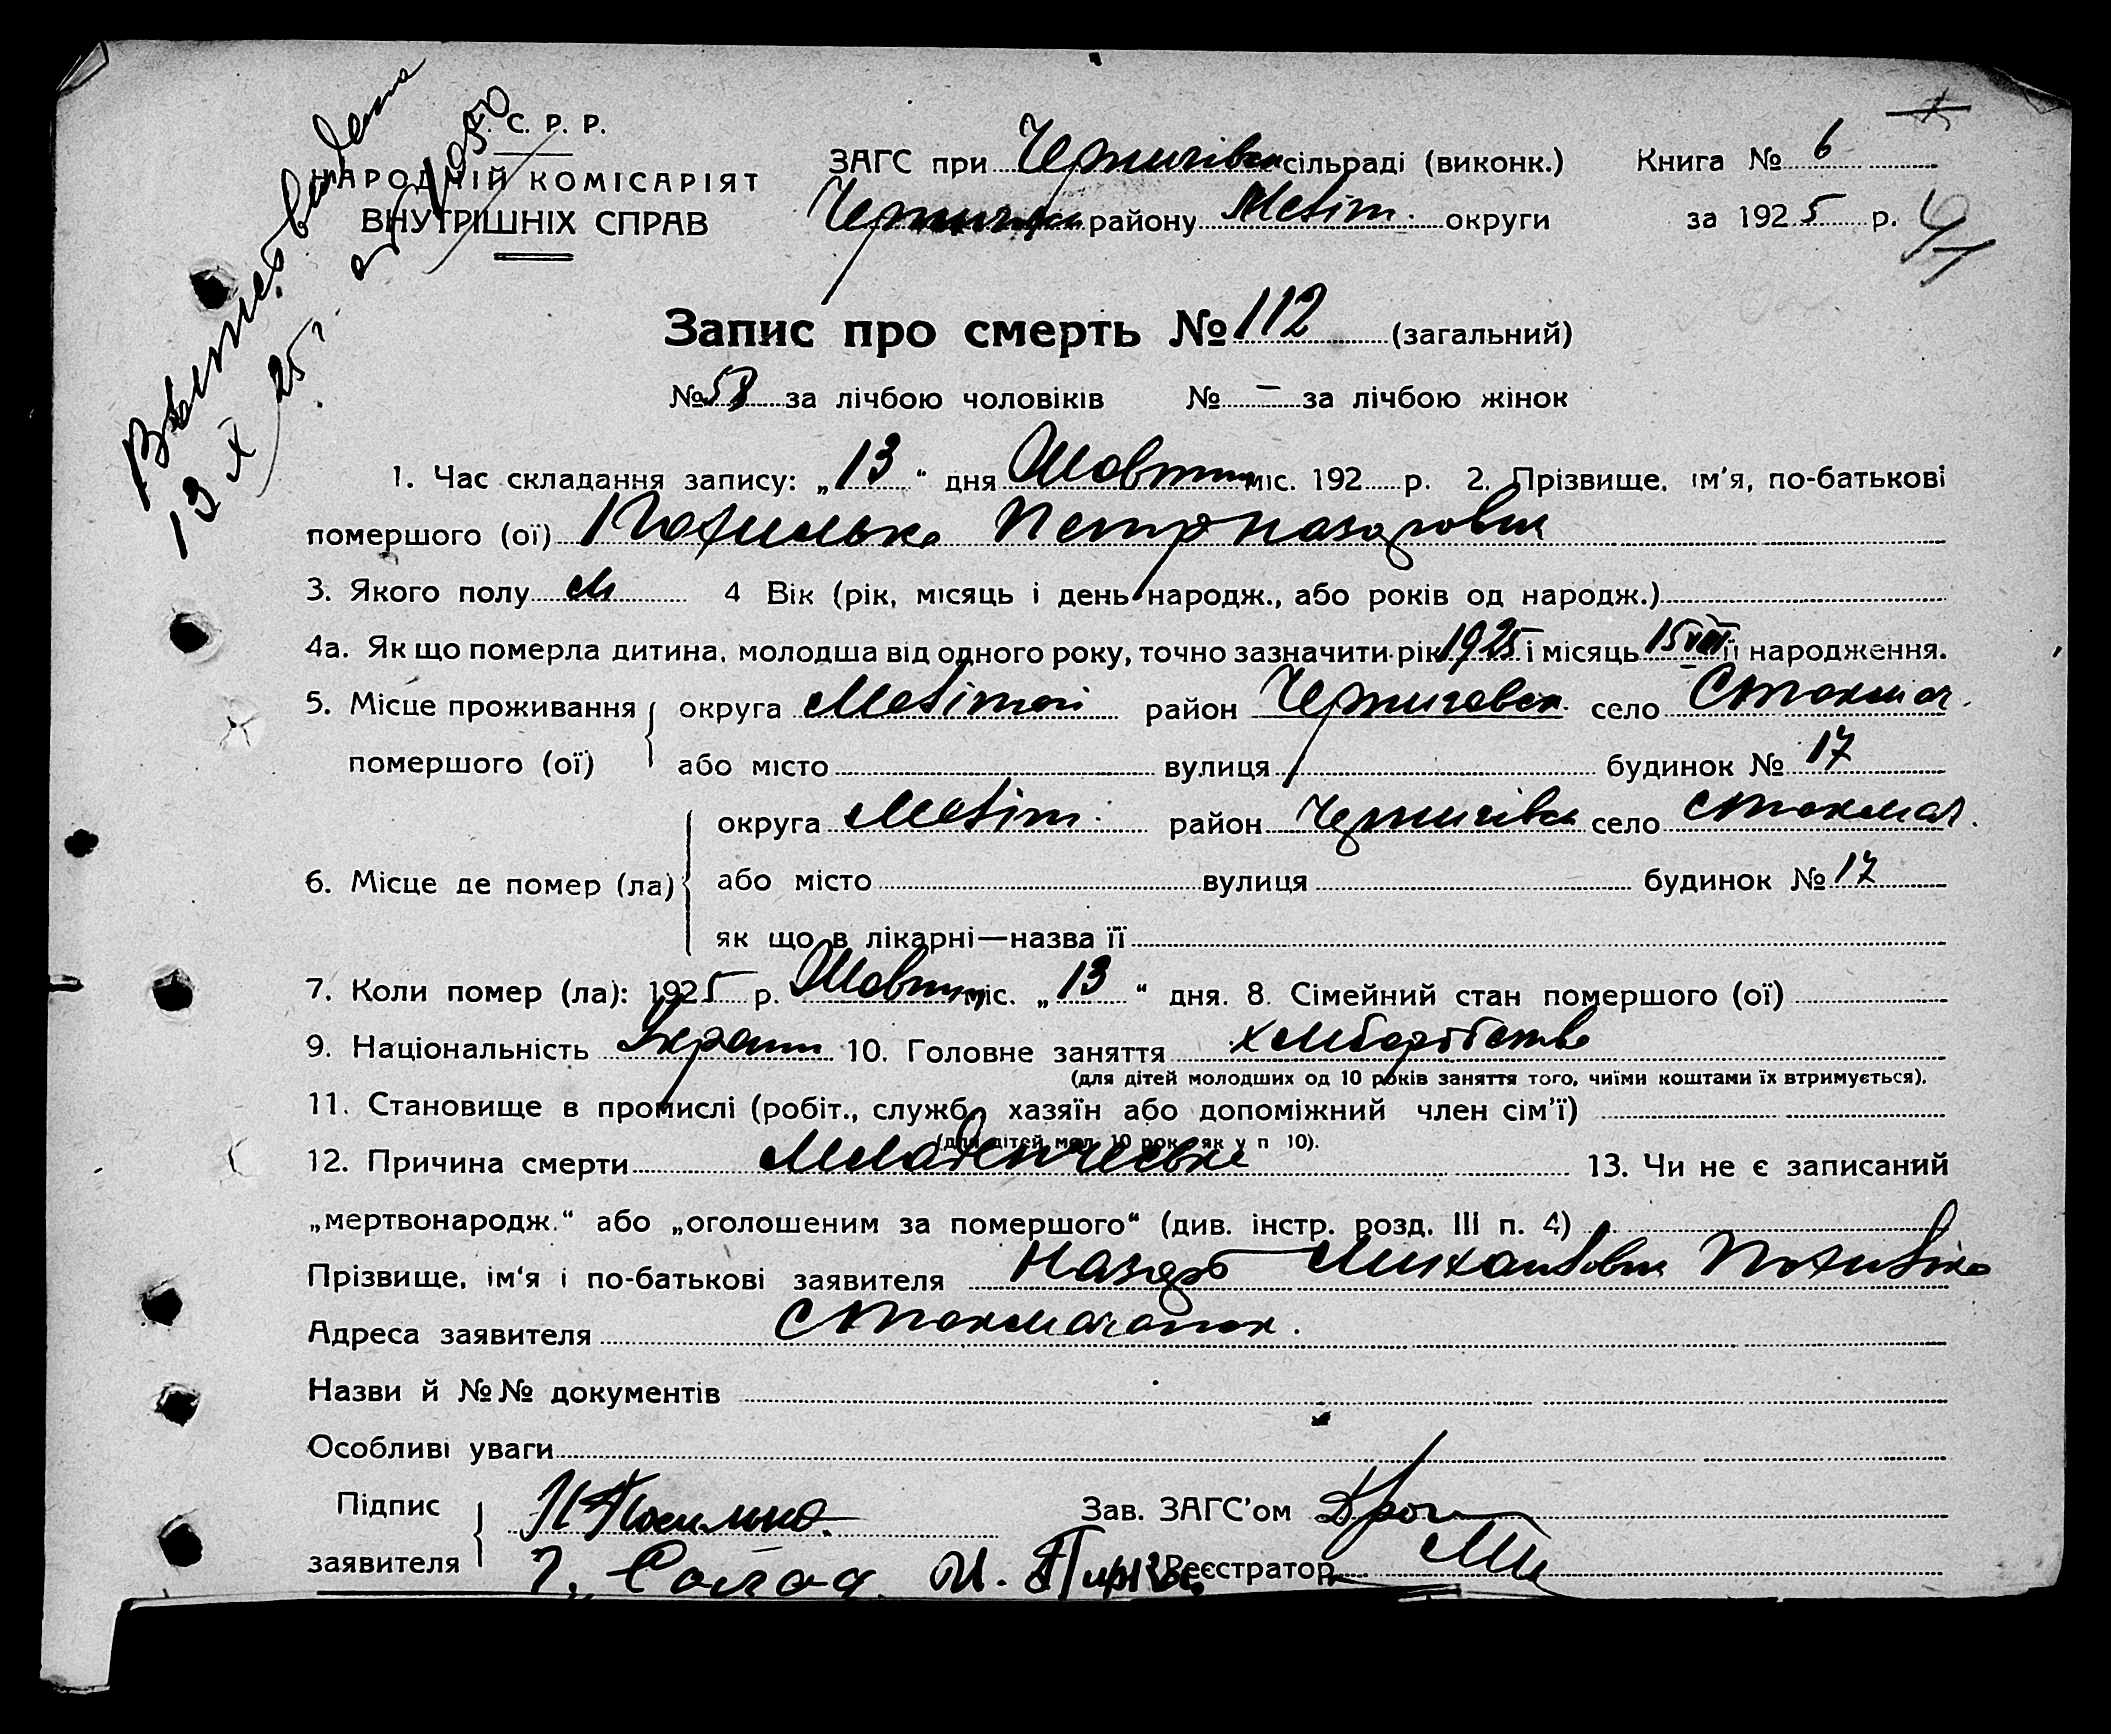 У. С. Р. Р.
НАРОДНІЙ КОМІСАРІЯТ
ВНУТРІШНІХ СПРАВ
13 X 25 г.
ЗАГС при Чернигівск сільраді (виконк.) Книга № 6
району Меліт. округи за 1925 р.
Запис про смерть № 112 (загальний)
№ 58 за лічбою чоловіків № — за лічбою жінок
1. Час складання запису: „13“ дня Жовтня міс. 192 р. 2. Прізвище, ім'я, по-батькові
помершого (ої) Похилько Петр Назарович
3. Якого полу м 4 Вік (рік, місяць і день народж., або років од народж.)
4а. Як що померла дитина, молодша від одного року, точно зазначити рік 1925 і місяць 15 VIII її народження.
5. Місце проживання округа район Черниговск село Стокмач.
помершого (ої) або місто вулиця будинок № 17
округа Меліт. район Чернигівск село
6. Місце де помер (ла) або місто вулиця будинок № 17
як що в лікарні—назва її
7. Коли помер (ла): 1925 р. Жовтня міс. „13“ дня. 8. Сімейний стан помершого (ої)
9. Національність Украин 10. Головне заняття хліборобство
(для дітей молодших од 10 років заняття того, чиїми коштами їх втримується).
11. Становище в промислі (робіт., службо, хазяїн або допоміжний член сім'ї)
(для дітей мол. 10 рок. як у п 10).
12. Причина смерти Младенческая 13. Чи не є записаний
„мертвонародж.“ або „оголошеним за помершого“ (див. інстр. розд. III п. 4)
Прізвище, ім'я і по-батькові заявителя Назар Михайлович Похилько
Адреса заявителя
Назви й №№ документів
Особливі уваги
Підпис Н Похилько Зав. ЗАГС'ом
заявителя Реєстратор